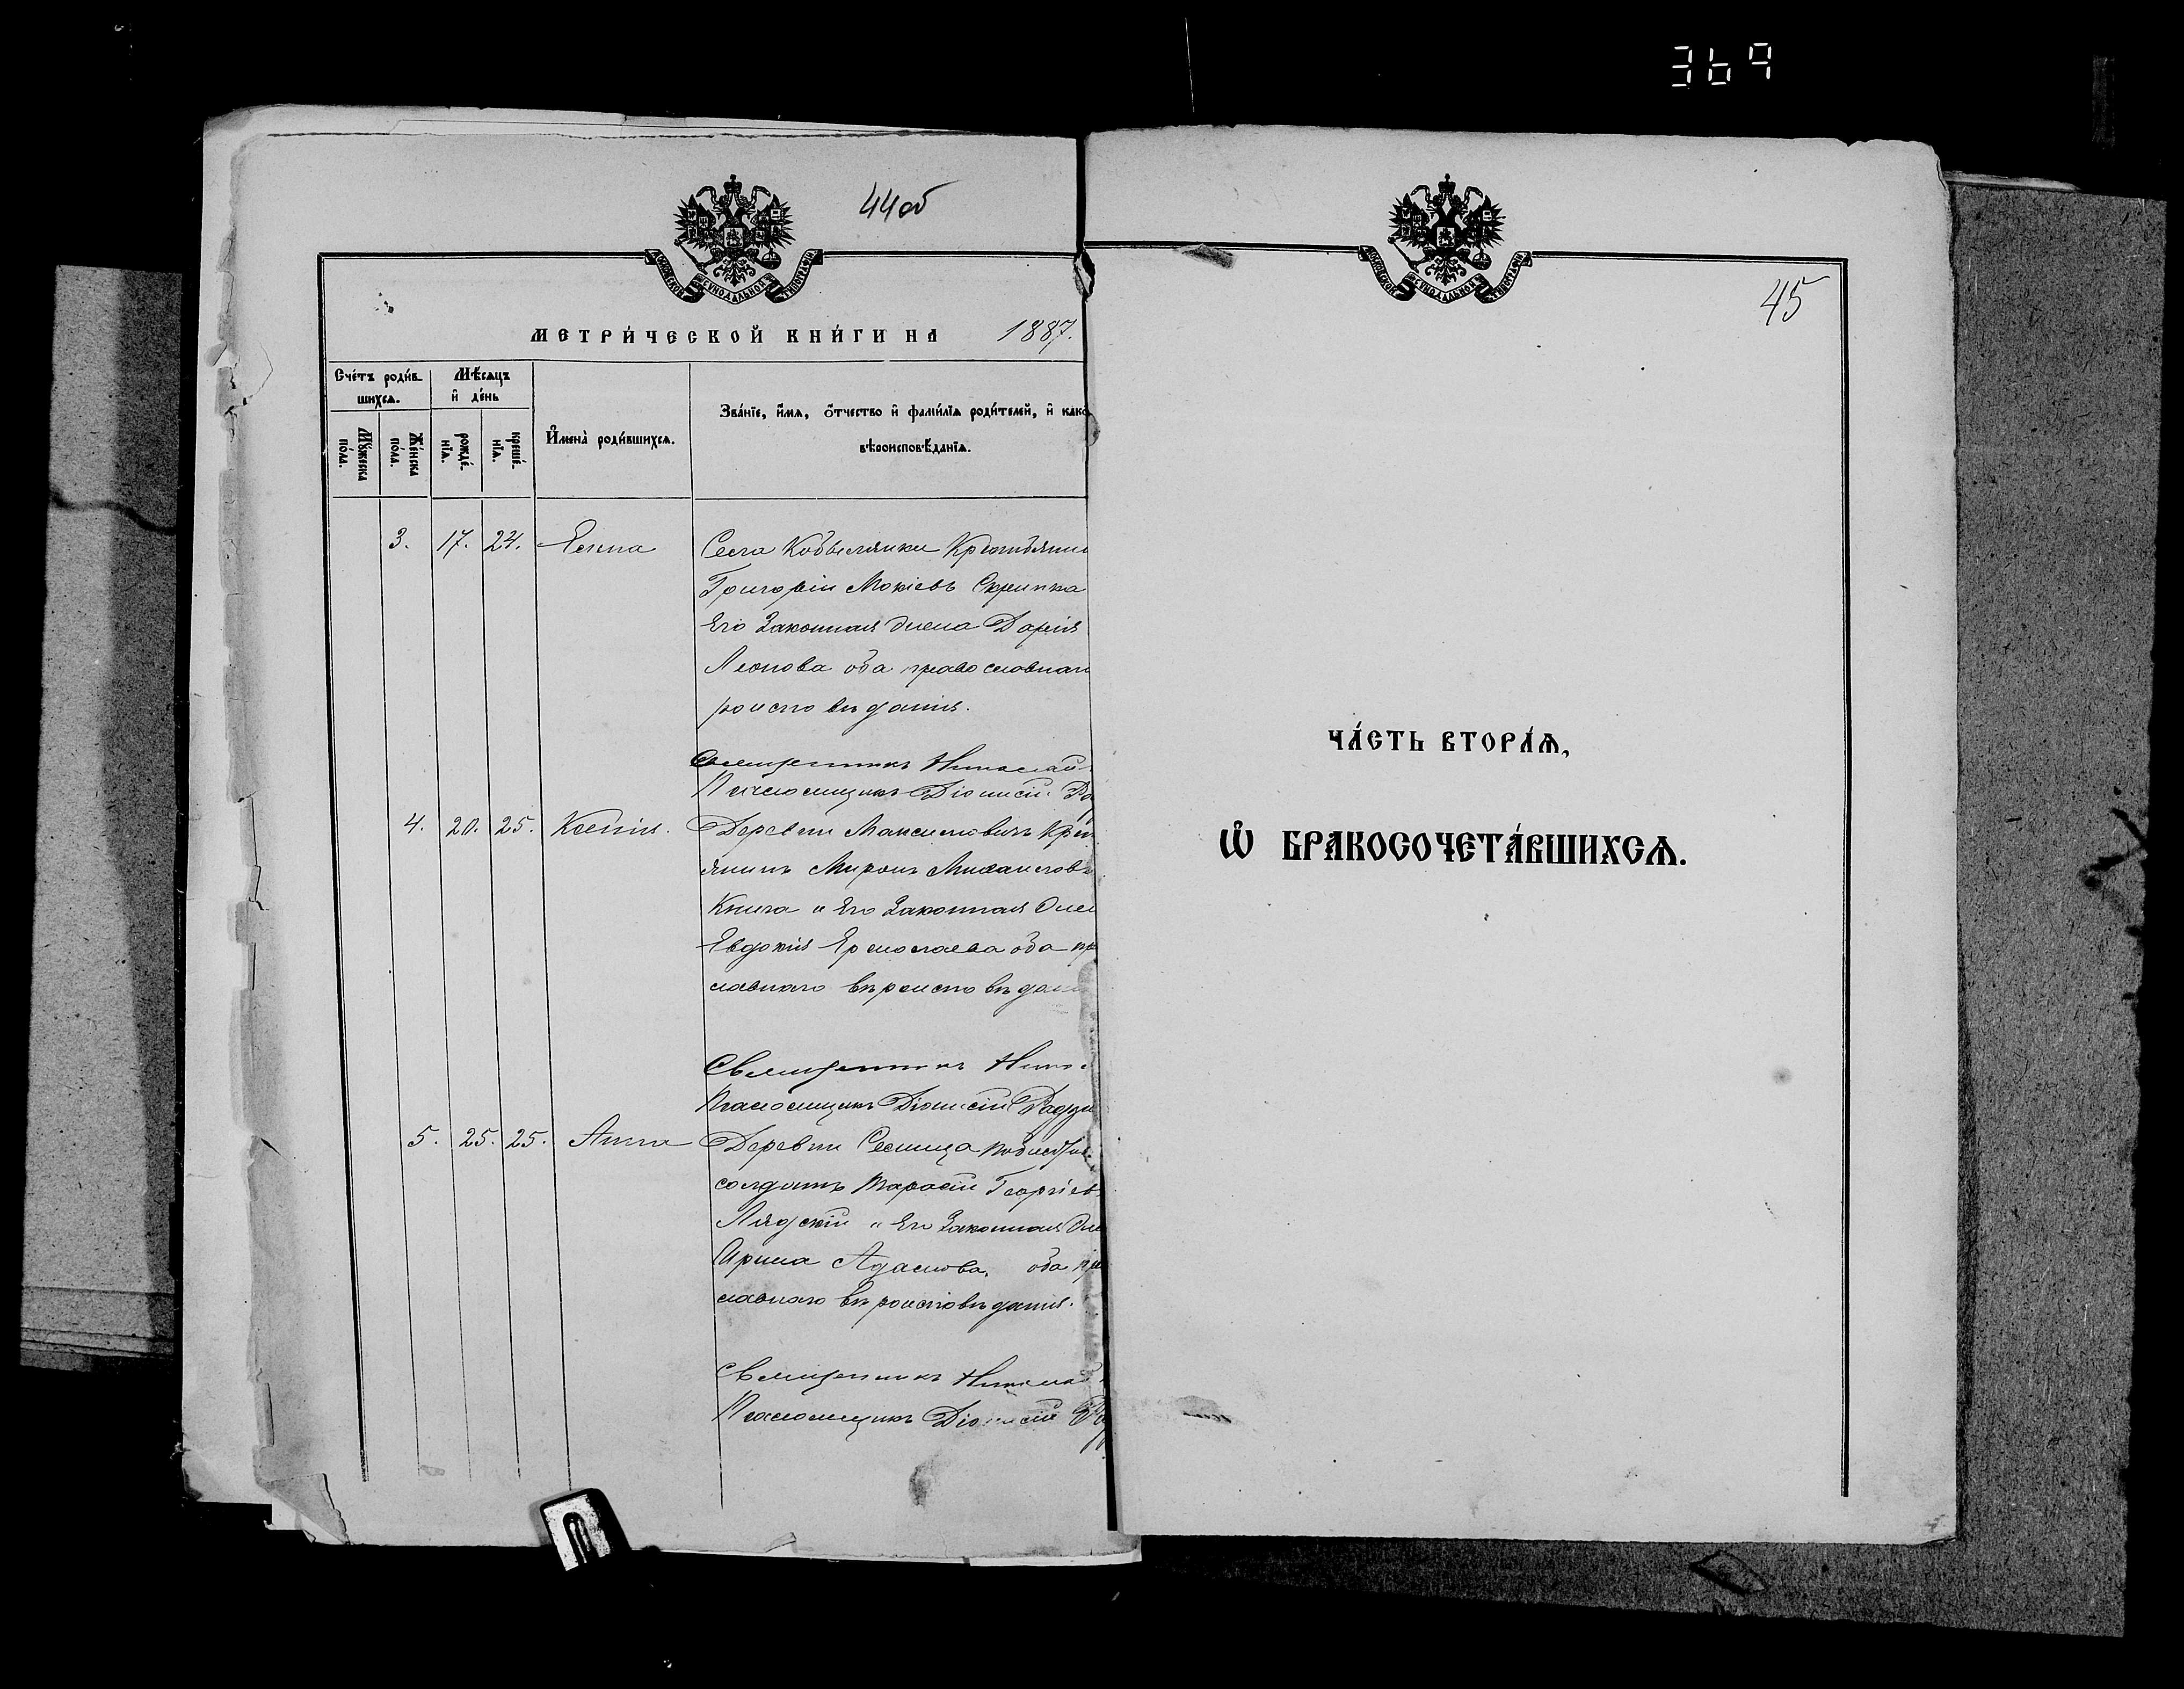 369
44об
МОСКОВСКОЙ СУНОДАЛЬНОЙ ТИПОГРАФІИ
МЕТРИ́ЧЕСКОЙ КНИ́ГИ НА 1887.
Сче́тъ роди́вшихсѧ.
Мѣ́сяцъ и҆ де́нь
И҆мена̀ роди́вшихсѧ.
Зва́нїе, и҆́мѧ, ѻ҆́тчество и҆ фами́лїѧ роди́телей, и҆ како
вѣроисповѣ́данїѧ.
Мꙋ́жеска по́ла.
Же́нска по́ла.
рожде́нїѧ.
креще́нїѧ.
3. 17. 24. Села Кобылянки Крестьянин
Григорій Мокіевъ Скрипка
Его Законная жена Дарія
Леонова оба православнаг
роисповѣданія.
Священникъ Николай
Псаломщикъ Діонисій
4. 20. 25. Ксенія. Деревни Максимовичъ Крес
янинъ Миронъ Михаиловъ
Книга и Его Законная Жен
Евдокія Ермолаева оба пр
славнаго вѣроисповѣдан
Священникъ Нико
Псаломщикъ Діонисій Радзи
5. 25. 25. Анна Деревни Селища
солдатъ Тарасій Георгіев
Лядскій и Его Законная Же
Ирина Адамова, оба пр
славнаго вѣроисповѣданія.
Священникъ Николай
Псаломщикъ Діонисій
МОСКОВСКОЙ СУНОДАЛЬНОЙ ТИПОГРАФІИ
45
ЧА́СТЬ ВТОРА́Ѧ,
Ѡ҆ БРАКОСОЧЕТА́ВШИХСѦ.